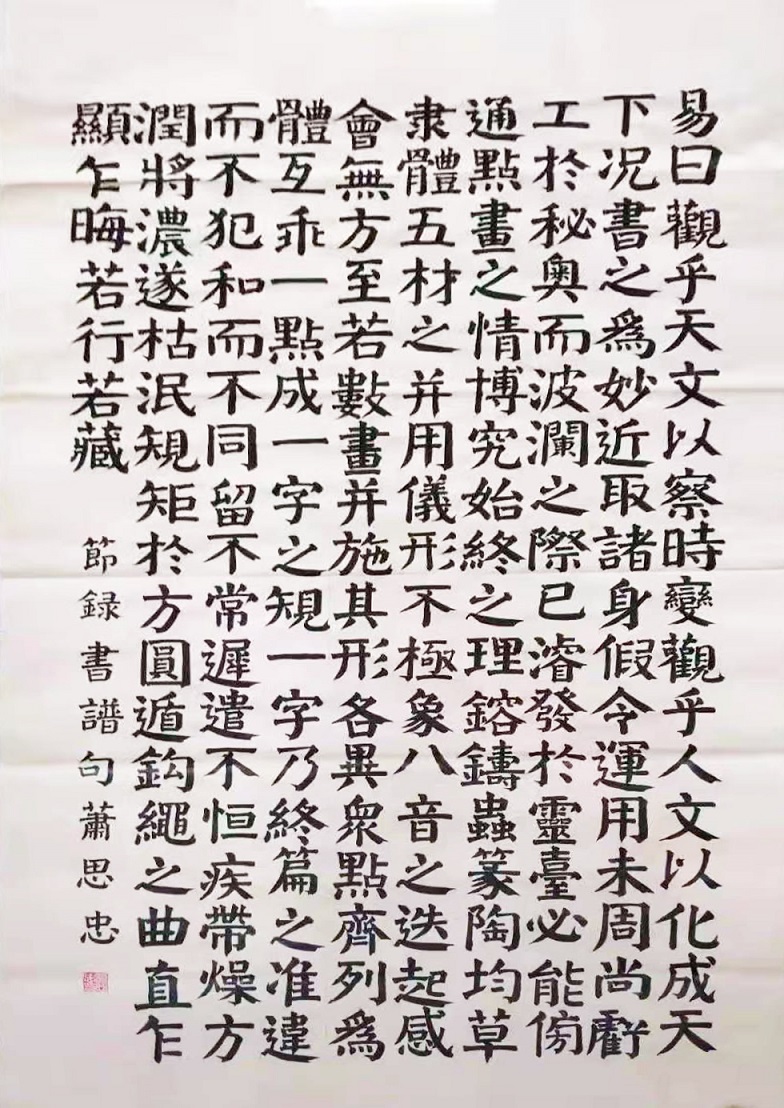 易曰觀乎天文以察時變觀乎人文以化成天
下况書之爲妙近取諸身假令運用未周尚虧
工於秘奧而波瀾之際已濬發於靈臺必能傍
通點畫之情博究始終之理鎔鑄蟲篆陶均草
隶體五材之并用儀形不極象八音之迭起感
會無方至若數畫并施其形各異衆點齊列爲
體互乖一點成一字之規一字乃終篇之准違
而不犯和而不同留不常遲遣不恒疾帶燥方
潤將濃遂枯泯規矩於方圓遁鈎繩之曲直乍
顯乍晦若行若藏
節録書譜句蕭思忠